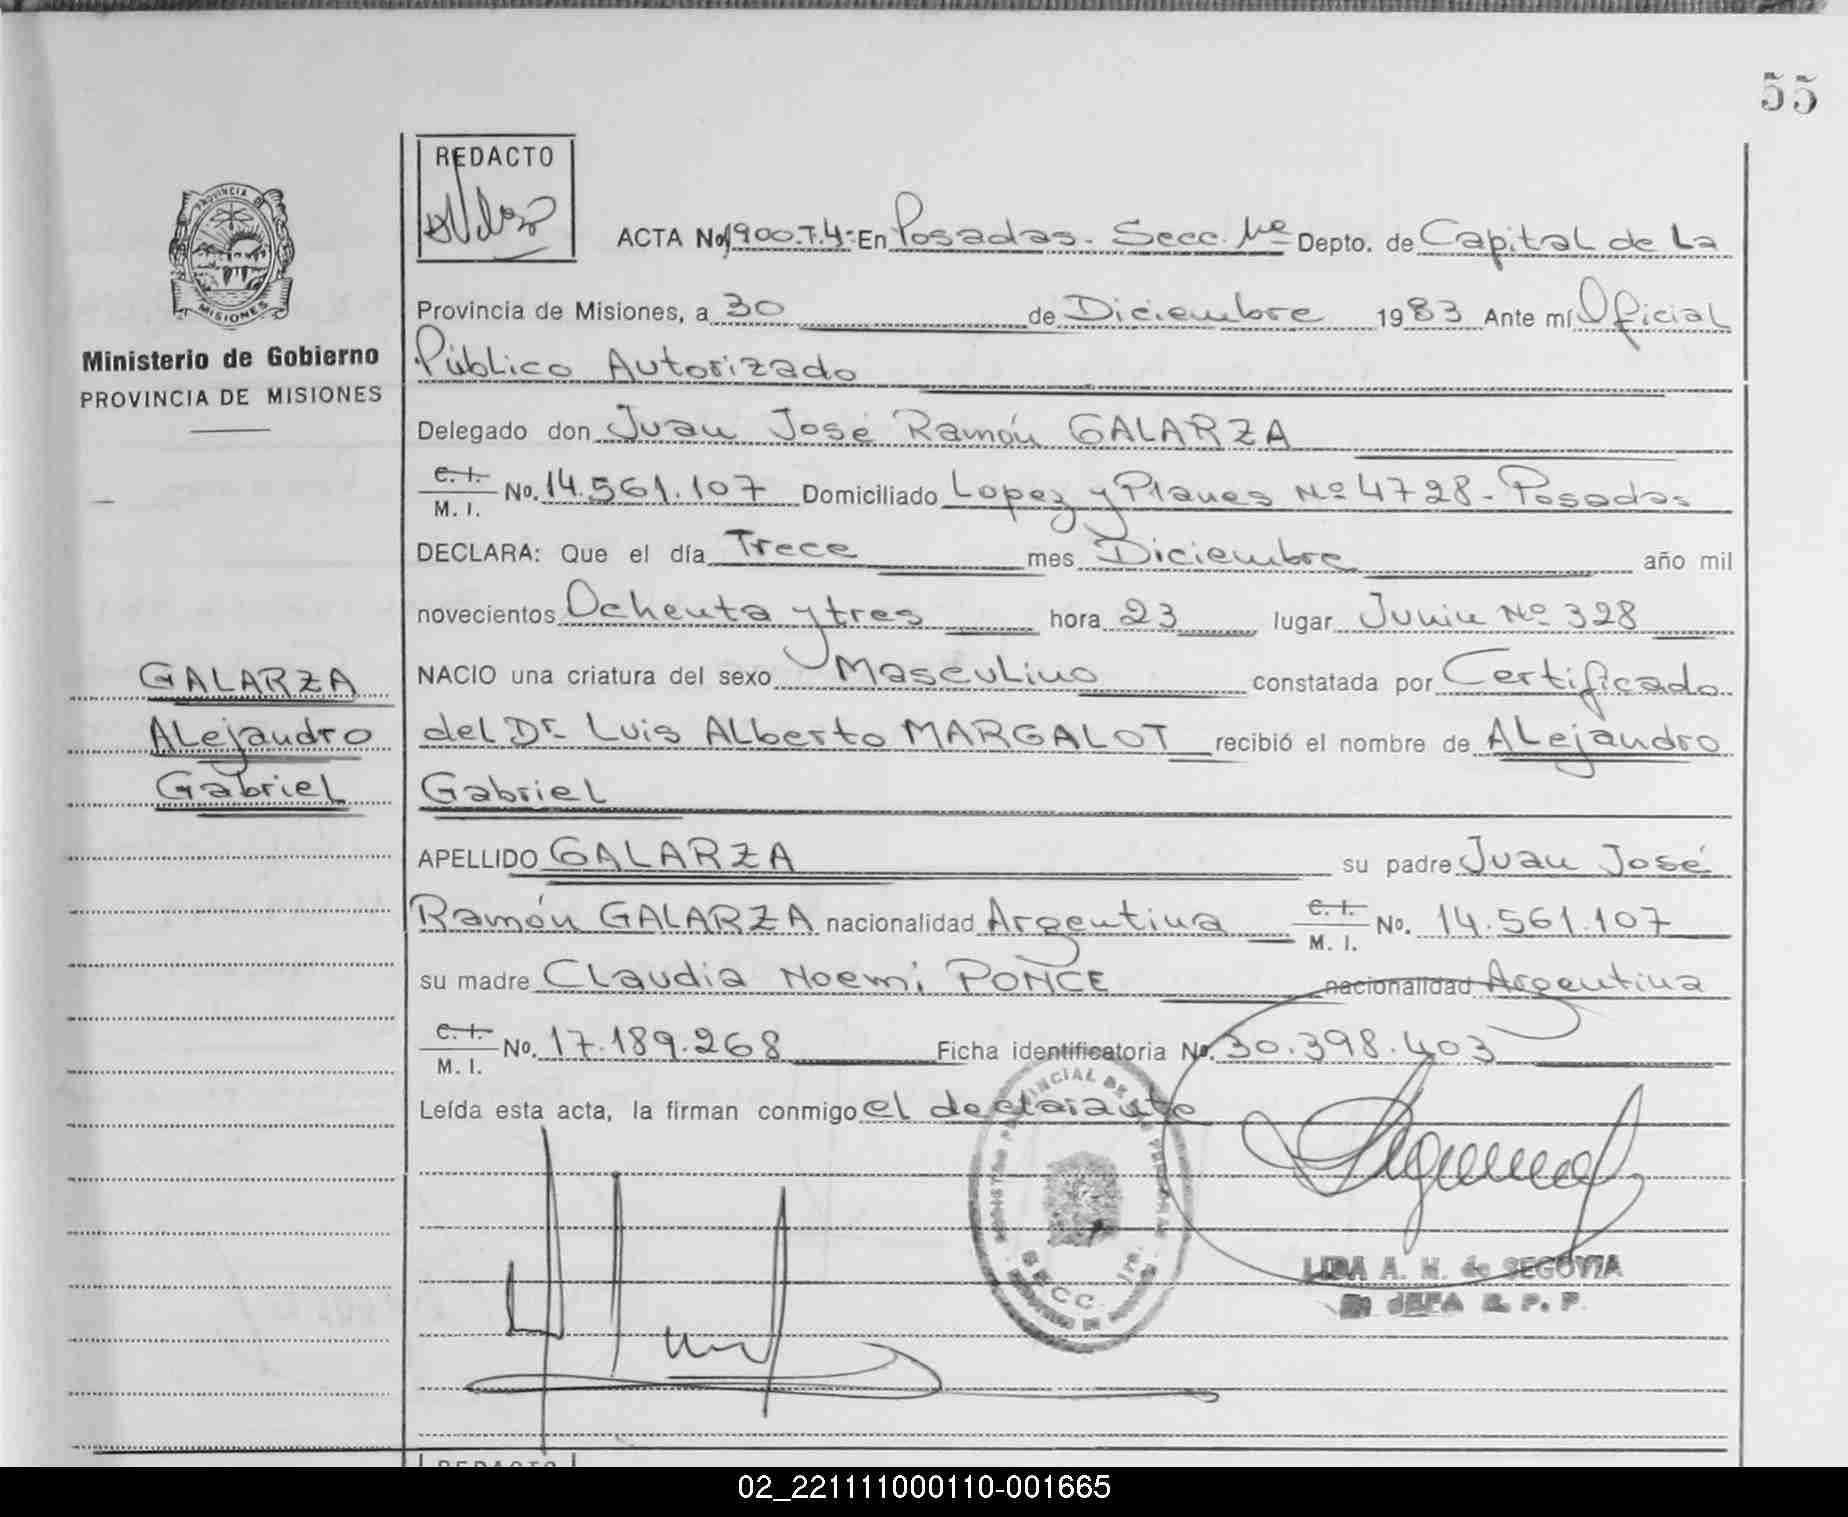 55
REDACTO
PROVINCIA DE
MISIONES
Ministerio de Gobierno
PROVINCIA DE MISIONES
ACTA No 1900.T.4: En Posadas. Secc. 1ra Depto. de Capital de La
Provincia de Misiones, a 30 de Diciembre 1983 Ante mí Oficial
Público Autorizado
Delegado don Juan José Ramón GALARZA
C. I. M. I. No. 14.561.107 Domiciliado Lopez y Planes Nº 4728 - Posadas
DECLARA: Que el día Trece mes Diciembre año mil
novecientos Ochenta y tres hora 23 lugar Junin Nº 328
NACIO una criatura del sexo Masculino constatada por Certificado
del Dr. Luis Alberto MARGALOT recibió el nombre de Alejandro
Gabriel
GALARZA
Alejandro
Gabriel
APELLIDO GALARZA su padre Juan José
Ramón GALARZA nacionalidad Argentina C. I. M. I. No. 14.561.107
su madre Claudia Noemi PONCE nacionalidad Argentina
C. I. M. I. No. 17.189.268 Ficha identificatoria No. 30.398.403
Leída esta acta, la firman conmigo el declarante
SECC. 1ra
LIDA A. M. de SEGOVIA
JEFA R. P. P.
REDACTO
02_221111000110-001665